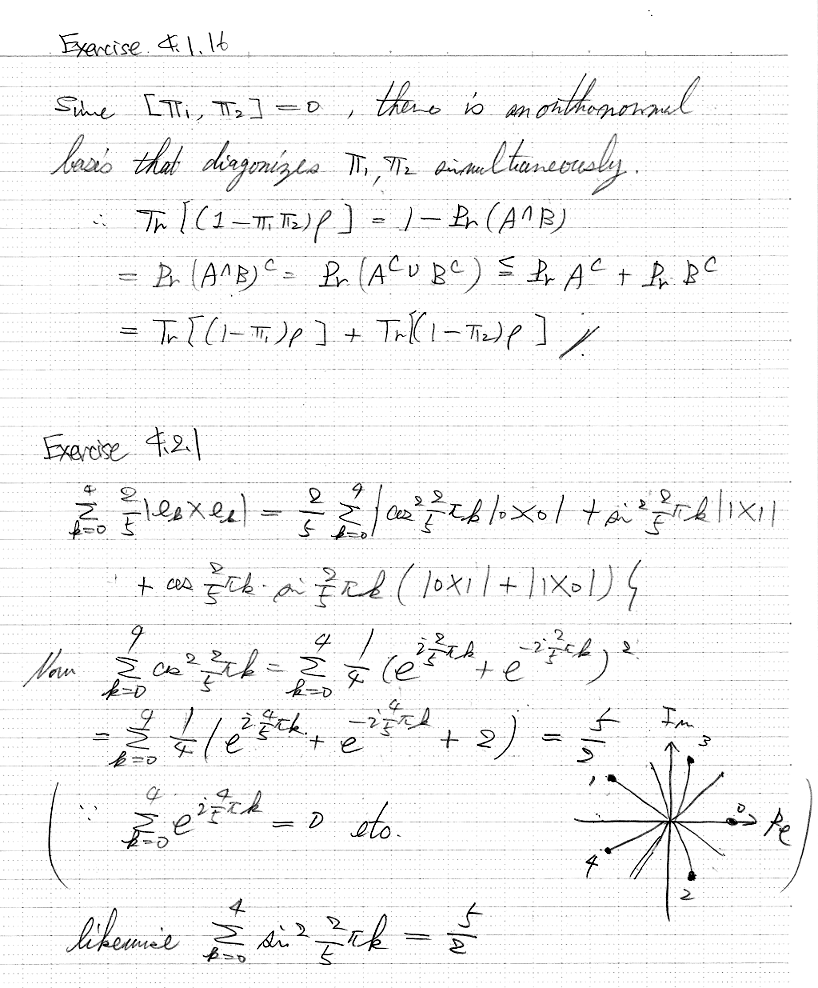 Exercise 4.1.16
Since [Π₁, Π₂] = 0 , there is an orthonormal
basis that diagonizes Π₁, Π₂ simultaneously.
∴ Tr [(1 − Π₁Π₂)ρ] = 1 − Pr (A∩B)
= Pr (A∩B)ᶜ = Pr (Aᶜ ∪ Bᶜ) ≦ Pr Aᶜ + Pr Bᶜ
= Tr [(1−Π₁)ρ] + Tr[(1−Π₂)ρ] //.
Exercise 4.2.1
∑_{k=0}^{4} 2/5 |e_k⟩⟨e_k| = 2/5 ∑_{k=0}^{4} { cos² 2/5 πk |0⟩⟨0| + sin² 2/5 πk |1⟩⟨1|
+ cos 2/5 πk · sin 2/5 πk ( |0⟩⟨1| + |1⟩⟨0| ) }
Now ∑_{k=0}^{4} cos² 2/5 πk = ∑_{k=0}^{4} 1/4 (e^{i 2/5 πk} + e^{−i 2/5 πk})²
= ∑_{k=0}^{4} 1/4 (e^{i 4/5 πk} + e^{−i 4/5 πk} + 2) = 5/2
( ∵ ∑_{k=0}^{4} e^{i 4/5 πk} = 0 etc. )
Im
3
1
0
Re
4
2
likewise ∑_{k=0}^{4} sin² 2/5 πk = 5/2